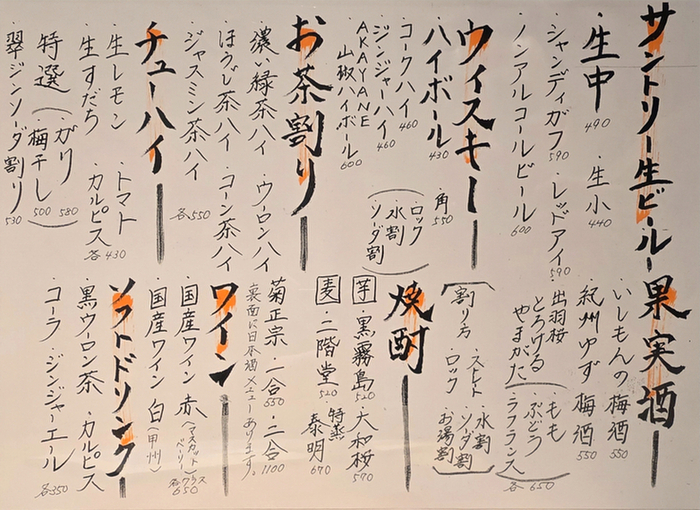 サントリー生ビール
・生中 490 ・生小 440
・シャンディガフ 590 ・レッドアイ 590
・ノンアルコールビール 600
ウイスキー
・ハイボール 430 ・角 550
・コークハイ 460 (ロック 水割 ソーダ割)
・ジンジャーハイ 460
・AKAYANE 山椒ハイボール 600
お茶割り
・濃い緑茶ハイ ・ウーロンハイ
・ほうじ茶ハイ ・コーン茶ハイ
・ジャスミン茶ハイ 各550
チューハイ
・生レモン ・トマト
・生すだち ・カルピス 各430
・特選(・がり 580 ・梅干し 500)
・翠ージンソーダ割り 530
果実酒
・いしもんの梅酒 550
・紀州ゆず梅酒 550
・出羽桜とろけるやまがた(・もも ・ぶどう ・ラフランス) 各650
焼酎
[割り方 ・ストレート ・ロック ・水割 ・ソーダ割 ・お湯割]
芋 ・黒霧島 520 ・大和桜 570
麦 ・二階堂 520 ・特蒸泰明 670
菊正宗 ・一合 550 ・二合 1100
裏面に日本酒メニューあります。
ワイン
・国産ワイン 赤(マスカットベーリー) 各グラス 650
・国産ワイン 白(甲州)
ソフトドリンク
・黒ウーロン茶 ・カルピス
・コーラ ・ジンジャーエール 各350